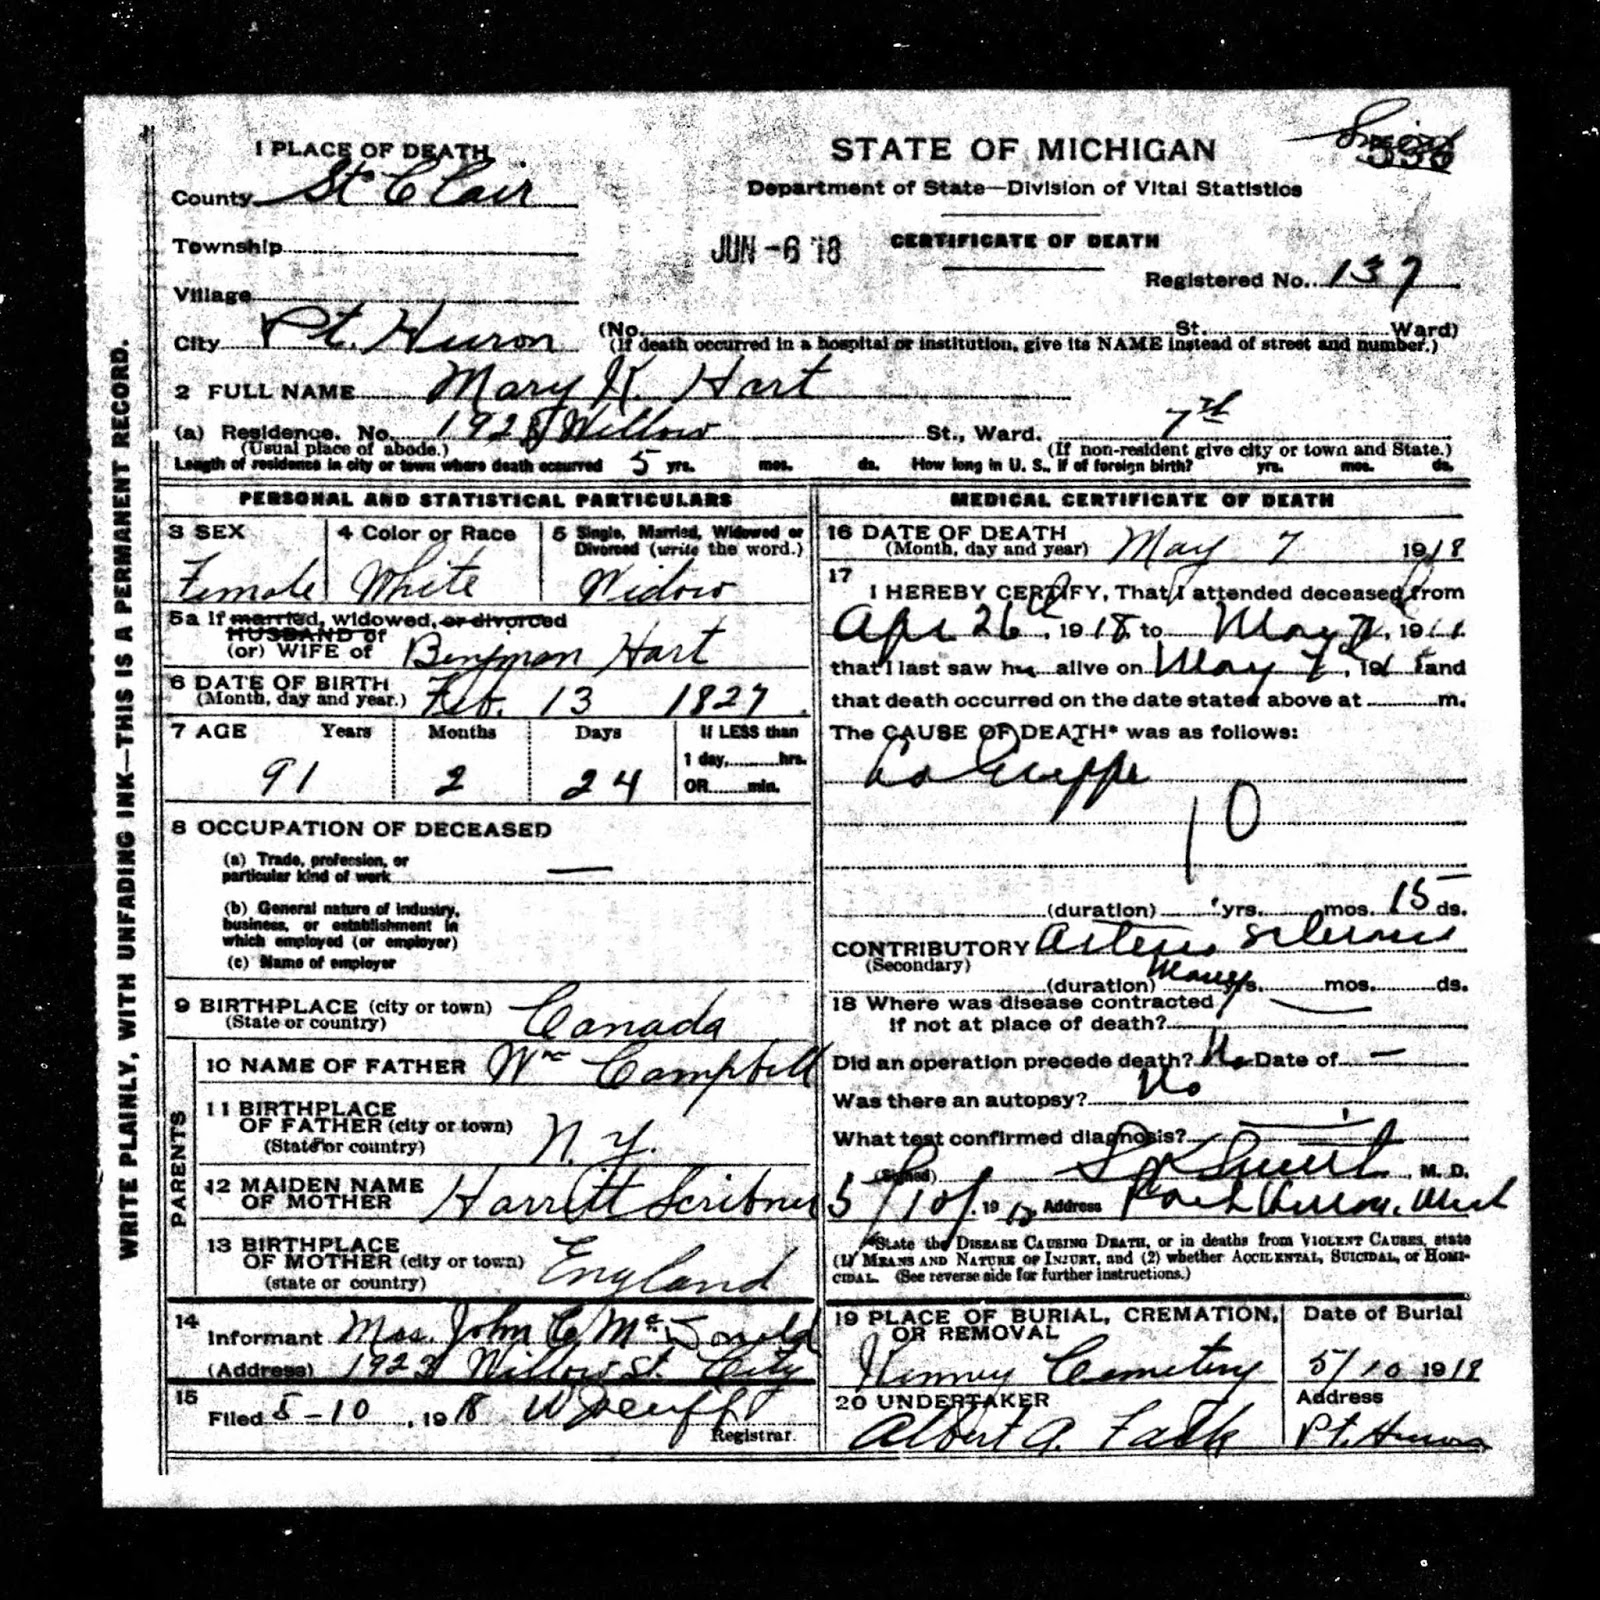 1 PLACE OF DEATH
STATE OF MICHIGAN
County St Clair
Department of State—Division of Vital Statistics
Township
JUN -6 '18
CERTIFICATE OF DEATH
Registered No. 137
Village
City Pt. Huron
(No. St. Ward)
(If death occurred in a hospital or institution, give its NAME instead of street and number.)
2 FULL NAME Mary K. Hart
(a) Residence. No. 1923 Willow St., Ward. 7th
(Usual place of abode.) (If non-resident give city or town and State.)
Length of residence in city or town where death occurred 5 yrs. mos. ds. How long in U. S., if of foreign birth? yrs. mos. ds.
WRITE PLAINLY, WITH UNFADING INK—THIS IS A PERMANENT RECORD.
PERSONAL AND STATISTICAL PARTICULARS
3 SEX
Female
4 Color or Race
White
5 Single, Married, Widowed or
Divorced (write the word.)
Widow
5a If married, widowed, or divorced
HUSBAND of
(or) WIFE of Benjman Hart
6 DATE OF BIRTH
(Month, day and year.) Feb. 13 1827
7 AGE Years Months Days If LESS than
1 day, hrs.
OR min.
91 2 24
8 OCCUPATION OF DECEASED
(a) Trade, profession, or
particular kind of work —
(b) General nature of industry,
business, or establishment in
which employed (or employer)
(c) Name of employer
9 BIRTHPLACE (city or town)
(State or country) Canada
PARENTS
10 NAME OF FATHER Wm Campbell
11 BIRTHPLACE
OF FATHER (city or town)
(State or country) N. Y.
12 MAIDEN NAME
OF MOTHER Harritt Scribner
13 BIRTHPLACE
OF MOTHER (city or town)
(state or country) England
14
Informant Mrs. John C. McDonald
(Address) 1923 Willow St. City
15
Filed 5-10, 1918
Registrar.
MEDICAL CERTIFICATE OF DEATH
16 DATE OF DEATH
(Month, day and year) May 7 1918
17
I HEREBY CERTIFY, That I attended deceased from
Apr 26th, 1918, to May 7, 191
that I last saw her alive on May 7, 191 and
that death occurred on the date stated above at m.
The CAUSE OF DEATH* was as follows:
La Grippe
10
(duration) yrs. mos. 15 ds.
CONTRIBUTORY Arterio Sclerosis
(Secondary)
(duration) Many yrs. mos. ds.
18 Where was disease contracted
if not at place of death? —
Did an operation precede death? No Date of —
Was there an autopsy? No
What test confirmed diagnosis?
(Signed) M. D.
5/10/, 1918 Address Port Huron, Mich
*State the DISEASE CAUSING DEATH, or in deaths from VIOLENT CAUSES, state
(1) MEANS AND NATURE OF INJURY, and (2) whether ACCIDENTAL, SUICIDAL, or HOMI-
CIDAL. (See reverse side for further instructions.)
19 PLACE OF BURIAL, CREMATION,
OR REMOVAL
Cemetery
Date of Burial
5/10 1918
20 UNDERTAKER
Albert A. Falk
Address
Pt. Huron